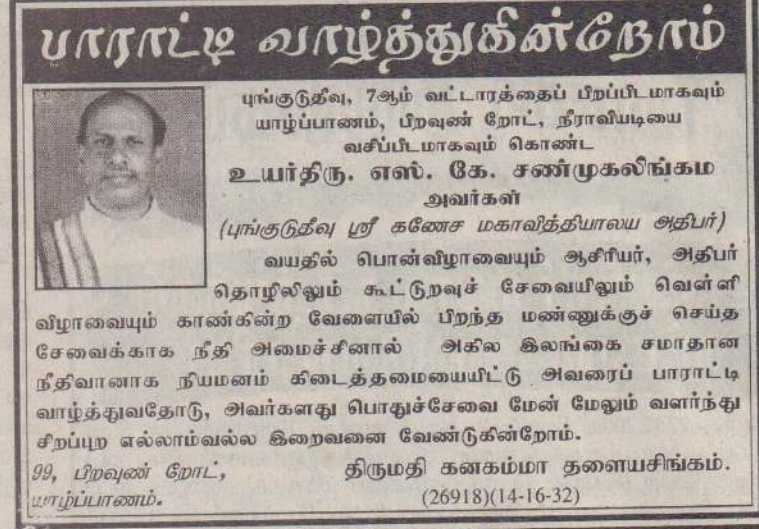 பாராட்டி வாழ்த்துகின்றோம்
புங்குடுதீவு, 7ஆம் வட்டாரத்தைப் பிறப்பிடமாகவும்
யாழ்ப்பாணம், பிறவுண் றோட், நீராவியடியை
வசிப்பிடமாகவும் கொண்ட
உயர்திரு. எஸ். கே. சண்முகலிங்கம
அவர்கள்
(புங்குடுதீவு ஸ்ரீ கணேச மகாவித்தியாலய அதிபர்)
வயதில் பொன்விழாவையும் ஆசிரியர், அதிபர்
தொழிலிலும் கூட்டுறவுச் சேவையிலும் வெள்ளி
விழாவையும் காண்கின்ற வேளையில் பிறந்த மண்ணுக்குச் செய்த
சேவைக்காக நீதி அமைச்சினால் அகில இலங்கை சமாதான
நீதிவானாக நியமனம் கிடைத்தமையையிட்டு அவரைப் பாராட்டி
வாழ்த்துவதோடு, அவர்களது பொதுச்சேவை மேன் மேலும் வளர்ந்து
சிறப்புற எல்லாம்வல்ல இறைவனை வேண்டுகின்றோம்.
99, பிறவுண் றோட், திருமதி கனகம்மா தளையசிங்கம்.
யாழ்ப்பாணம். (26918)(14-16-32)